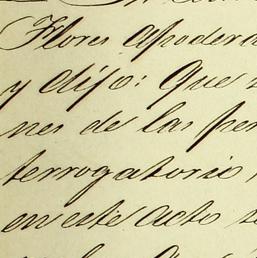 Flores apodera
y dijo: Que
nes de las per
terrogatorio
en este acto